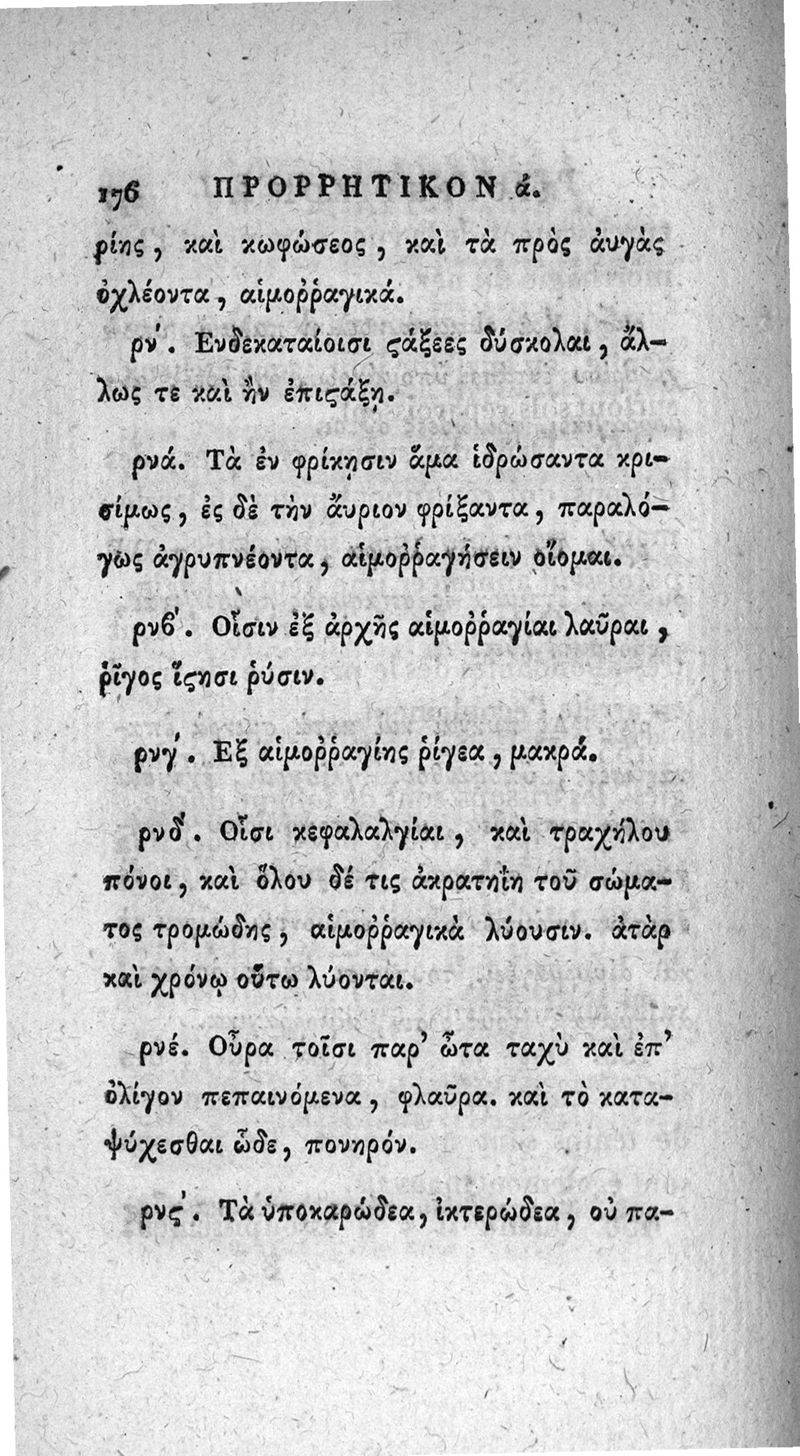 176 ΠΡΟΡΡΗΤΙΚΟΝ ά.
ρίης, καὶ κωφώσεος, καὶ τὰ πρὸς ἀυγὰς
ὀχλέοντα, αἱμοῤῥαγικά.
ρν΄. Ενδεκαταίοισι ϛάξεες δύσκολαι, ἄλ-
λως τε καὶ ἢν ἐπιϛάξῃ.
ρνά. Τὰ ἐν φρίκῃσιν ἅμα ἱδρώσαντα κρι-
σίμως, ἐς δὲ τὴν ἄυριον φρίξαντα, παραλό-
γως ἀγρυπνέοντα, αἱμοῤῥαγήσειν οἴομαι.
ρνϐ΄. Οἷσιν ἐξ ἀρχῆς αἱμοῤῥαγίαι λαῦραι,
ῥῖγος ἵϛησι ῥύσιν.
ρνγ΄. Εξ αἱμοῤῥαγίης ῥίγεα, μακρά.
ρνδ΄. Οἷσι κεφαλαλγίαι, καὶ τραχήλου
πόνοι, καὶ ὅλου δέ τις ἀκρατηΐη τοῦ σώμα-
τος τρομώδης, αἱμοῤῥαγικὰ λύουσιν. ἀτὰρ
καὶ χρόνῳ οὕτω λύονται.
ρνέ. Οὖρα τοῖσι παρ' ὦτα ταχὺ καὶ ἐπ'
ὀλίγον πεπαινόμενα, φλαῦρα. καὶ τὸ κατα-
ψύχεσθαι ὧδε, πονηρόν.
ρνϛ΄. Τὰ ὑποκαρώδεα, ἰκτερώδεα, οὐ πα-